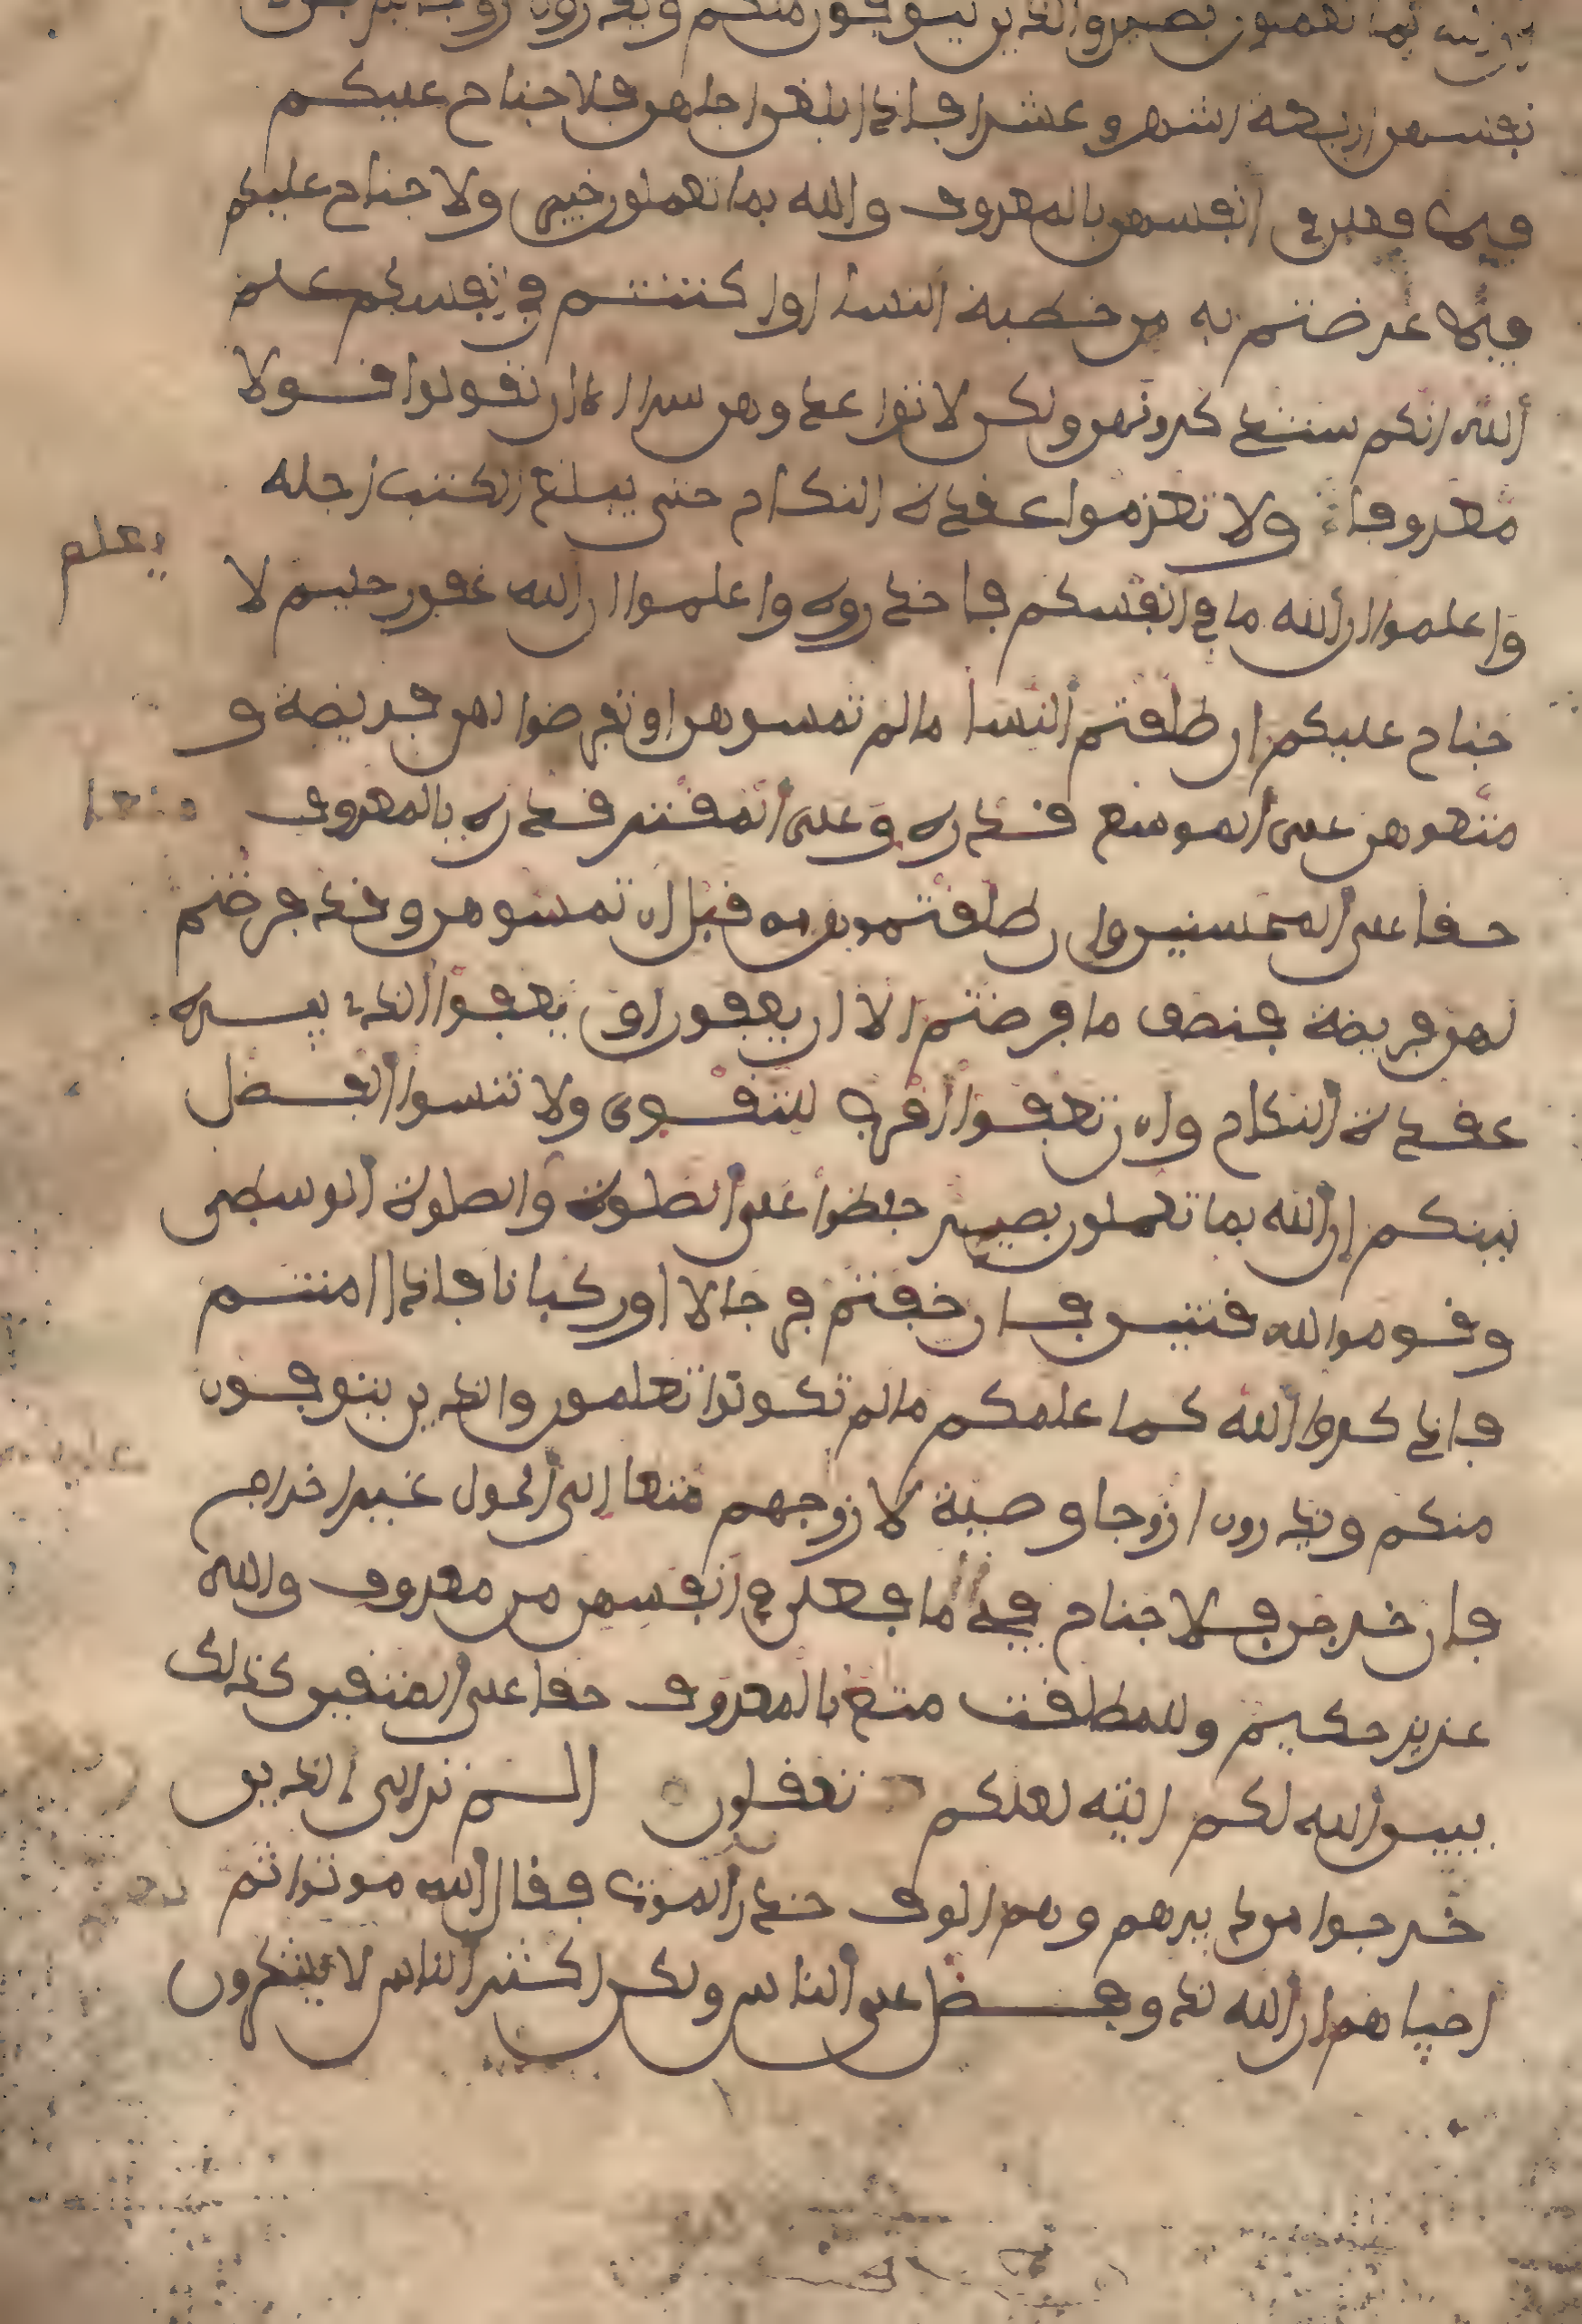 بما تعملون بصير والذين يتوفون منكم ويذرون ازوجا يتربصن
بانفسهن اربعة اشهر وعشرا فاذا بلغن اجلهن فلا جناح عليكم
فيما فعلن في انفسهن بالمعروف والله بما تعملون خبير ولا جناح عليكم
فيما عرضتم به من خطبة النسا او اكننتم في انفسكم علم
الله انكم ستذكرونهن ولكن لا تواعدوهن سرا الا ان تقولوا قولا
معروفا ولا تعزموا عقدة النكاح حتى يبلغ الكتب اجله
واعلموا ان الله ما في انفسكم فاحذروه واعلموا ان الله غفور حليم لا
يعلم
جناح عليكم ان طلقتم النسا ما لم تمسوهن او تفرضوا لهن فريضة و
متعوهن على الموسع قدره وعلى المقتر قدره بالمعروف
متعا
حقا على المحسنين وان طلقتموهن من قبل ان تمسوهن وقد فرضتم
لهن فريضة فنصف ما فرضتم الا ان يعفون او يعفوا الذي بيده
عقدة النكاح وان تعفوا اقرب للتقوى ولا تنسوا الفضل
بينكم ان الله بما تعملون بصير حفظوا على الصلوت والصلوة الوسطى
وقوموا لله قنتين فان خفتم فرجالا او ركبانا فاذا امنتم
فاذكروا الله كما علمكم ما لم تكونوا تعلمون والذين يتوفون
منكم ويذرون ازوجا وصية لازوجهم متعا الى الحول غير اخراج
فان خرجن فلا جناح في ما فعلن في انفسهن من معروف والله
عزيز حكيم وللمطلقت متع بالمعروف حقا على المتقين كذلك
يبين الله لكم ايته لعلكم تعقلون الم تر الى الذين
خرجوا من ديرهم وهم الوف حذر الموت فقال الله موتوا ثم
احياهم ان الله لذو فضل على الناس ولكن اكثر الناس لا يشكرون